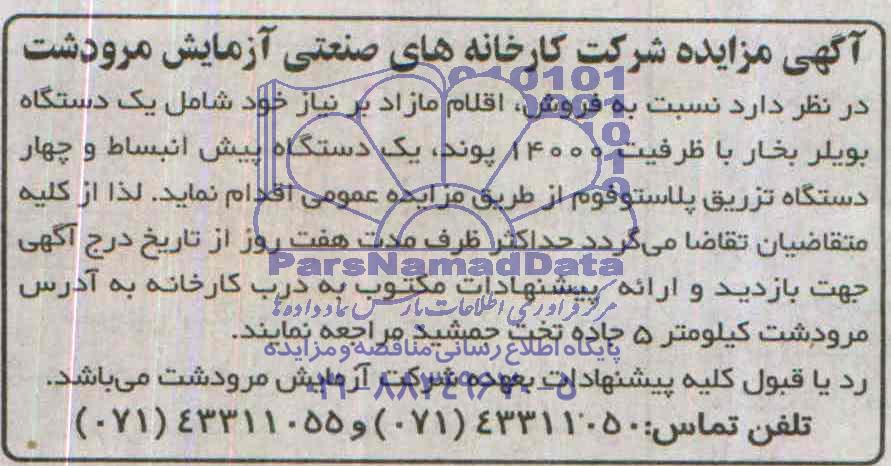 آگهی مزایده شرکت کارخانه های صنعتی آزمایش مرودشت
در نظر دارد نسبت به فروش، اقلام مازاد بر نیاز خود شامل یک دستگاه
بویلر بخار با ظرفیت ۱۴۰۰۰ پوند، یک دستگاه پیش انبساط و چهار
دستگاه تزریق پلاستوفوم از طریق مزایده عمومی اقدام نماید. لذا از کلیه
متقاضیان تقاضا می‌گردد حداکثر ظرف مدت هفت روز از تاریخ درج آگهی
جهت بازدید و ارائه پیشنهادات مکتوب به درب کارخانه به آدرس
مرودشت کیلومتر ۵ جاده تخت جمشید مراجعه نمایند.
رد یا قبول کلیه پیشنهادات بعهده شرکت آزمایش مرودشت می‌باشد.
تلفن تماس: ۴۳۳۱۱۰۵۰ (۰۷۱) و ۴۳۳۱۱۰۵۵ (۰۷۱)
ParsNamadData
مرکز فرآوری اطلاعات پارس نماد داده‌ها
پایگاه اطلاع رسانی مناقصه و مزایده
۰۲۱-۸۸۳۴۹۶۷۰-۵